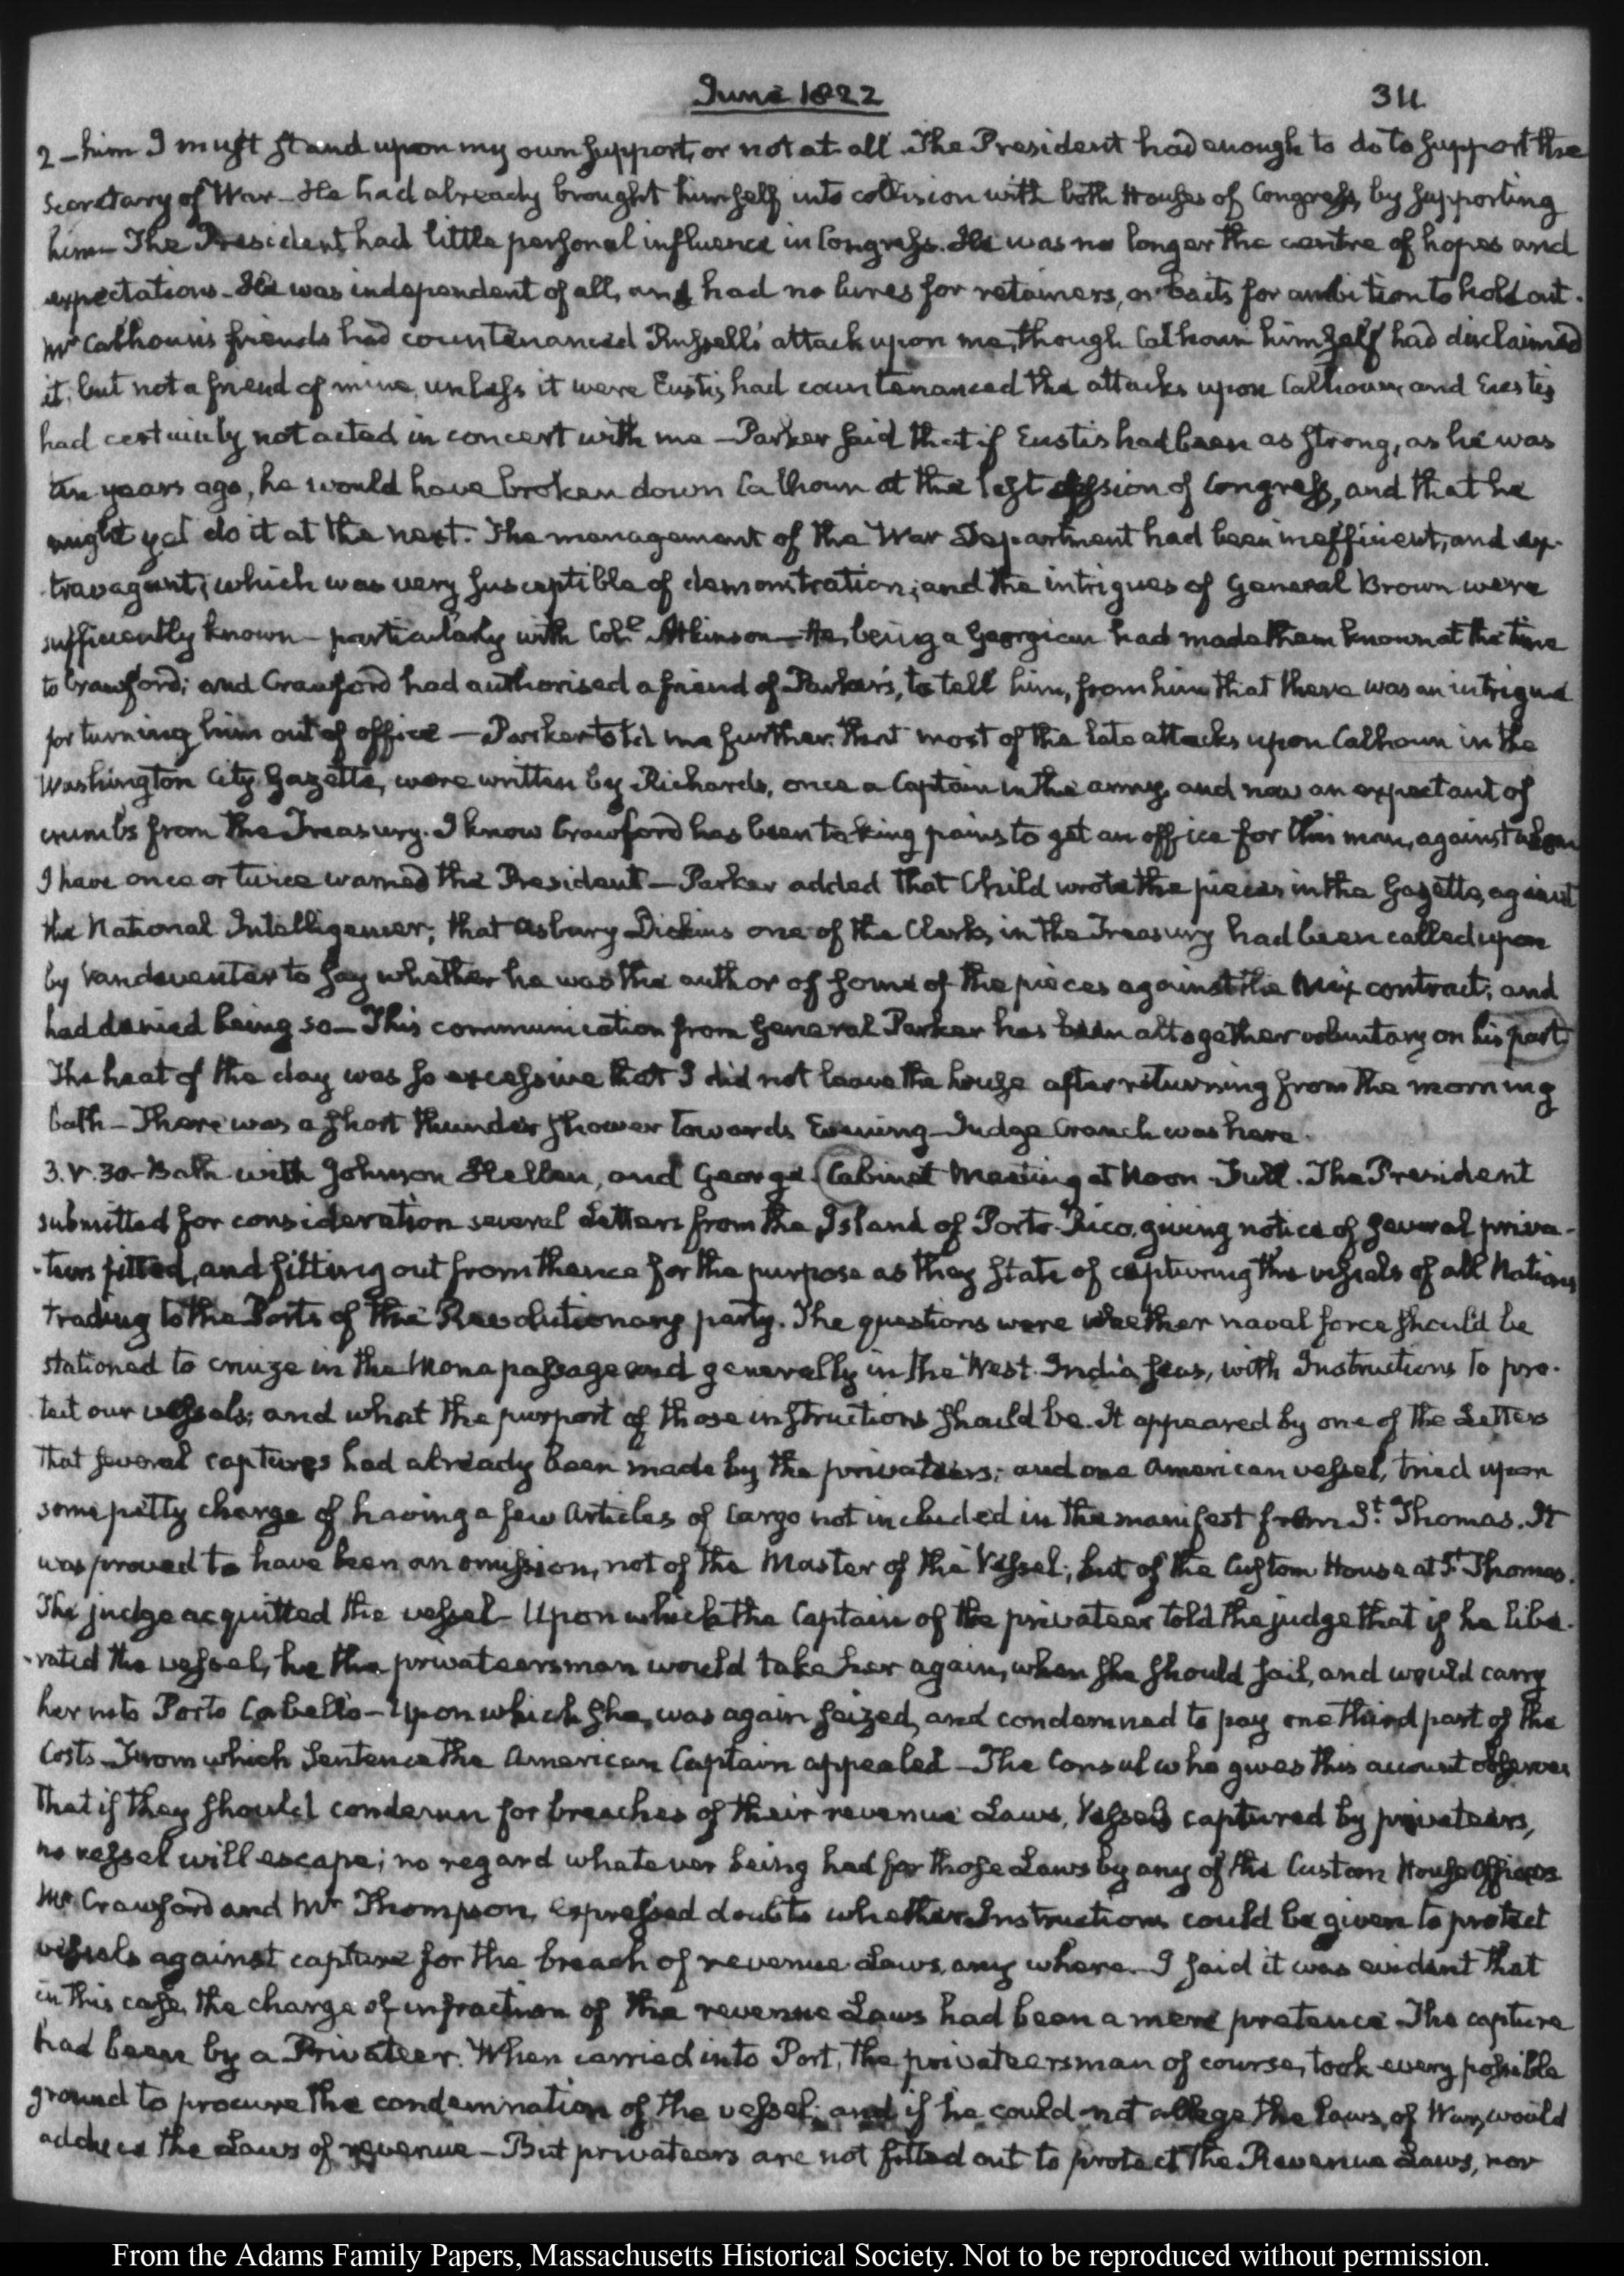 June 1822
311.
2 – him I must stand upon my own support, or not at all. The President had enough to do to support the
Secretary of War – He had already brought himself into collision with both Houses of Congress, by supporting
him – The President had little personal influence in Congress. He was no longer the centre of hopes and
expectations – He was independent of all, and had no lures for retainers, or baits for ambition to hold out.
Mr Calhoun's friends had countenanced Russell's attack upon me, though Calhoun himself had disclaimed
it; but not a friend of mine, unless it were Eustis, had countenanced the attacks upon Calhoun, and Eustis
had certainly not acted in concert with me – Parker said that if Eustis had been as strong, as he was
ten years ago, he would have broken down Calhoun at the last session of Congress, and that he
might yet do it at the next. The management of the War Department had been inefficient, and ex-
travagant; which was very susceptible of demonstration; and the intrigues of General Brown were
sufficiently known – particularly with Coll Atkinson – He, being a Georgian had made them known at the time
to Crawford; and Crawford had authorised a friend of Parker's, to tell him, from him that there was an intrigue
for turning him out of office – Parker told me further, that most of the late attacks upon Calhoun in the
Washington City Gazette, were written by Richards, once a Captain in the army, and now an expectant of
crumbs from the Treasury. I know Crawford has been taking pains to get an office for this man, against whom
I have once or twice warned the President – Parker added that Child wrote the pieces in the Gazette, against
the National Intelligencer; that Asbury Dickins one of the Clerks, in the Treasury had been called upon
by Vandeventer to say whether he was the author of some of the pieces against the Mix contract; and
had denied being so – This communication from General Parker has been altogether voluntary on his part.
The heat of the day was so excessive that I did not leave the house after returning from the morning
bath – There was a short thunder shower towards Evening – Judge Cranch was here.
3. V. 30. Bath with Johnson Hellen, and George. Cabinet Meeting at Noon – Full. The President
submitted for consideration several Letters from the Island of Porto-Rico, giving notice of several priva-
-teers fitted, and fitting out from thence for the purpose as they state of capturing the vessels of all Nations
trading to the Ports of the Revolutionary party. The questions were whether naval force should be
stationed to cruize in the Mona passage and generally in the West-India seas, with Instructions to pro-
-tect our vessels; and what the purport of those instructions should be. It appeared by one of the Letters
that several captures had already been made by the privateers; and one American vessel, tried upon
some petty charge of having a few Articles of Cargo not included in the manifest from St. Thomas. It
was proved to have been an omission, not of the Master of the Vessel; but of the Custom House at St Thomas.
The judge acquitted the vessel – Upon which the Captain of the privateer told the judge that if he libe-
-rated the vessel, he the privateersman would take her again, when she should sail, and would carry
her into Porto Cabello – Upon which she, was again seized, and condemned to pay one third part of the
Costs – From which Sentence the American Captain appealed – The Consul who gives this account observes
that if they should condemn for breaches of their revenue Laws, Vessels captured by privateers,
no vessel will escape; no regard whatever being had for those Laws by any of the Custom House Officers
Mr Crawford and Mr Thompson, expressed doubts whether Instructions could be given to protect
vessels against capture for the breach of revenue Laws, any where – I said it was evident that
in this case, the charge of infraction of the revenue Laws had been a mere pretence – The capture
had been by a Privateer. When carried into Port, the privateersman of course, took every possible
ground to procure the condemnation of the vessel; and if he could not allege the Laws of War, would
adduce the Laws of revenue – But privateers are not fitted out to protect the Revenue Laws, nor
From the Adams Family Papers, Massachusetts Historical Society. Not to be reproduced without permission.